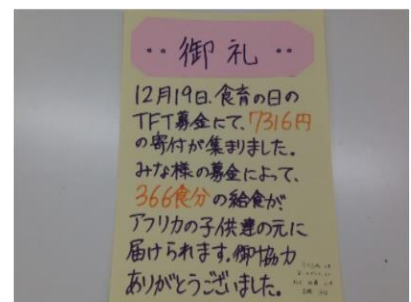 ‥ 御礼 ‥
12月19日、食育の日の
TFT募金にて、7316円
の寄付が集まりました。
みな様の募金によって、
366食分の給食が、
アフリカの子供達の元に
届けられます。御協力
ありがとうございました。